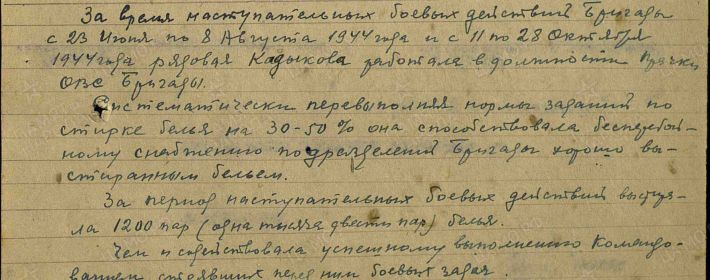 За время наступательных боевых действий Бригады
с 23 Июня по 8 Августа 1944 года и с 11 по 28 Октября
1944 года рядовая Кадыкова работала в должности Прачки
ОВС Бригады.
Систематически перевыполняя нормы заданий по
стирке белья на 30-50% она способствовала бесперебой-
ному снабжению подразделений Бригады хорошо вы-
стиранным бельем.
За период наступательных боевых действий выстира-
ла 1200 пар (одна тысяча двести пар) белья.
Чем и содействовала успешному выполнению Командо-
ванием стоявших перед ним боевых задач.